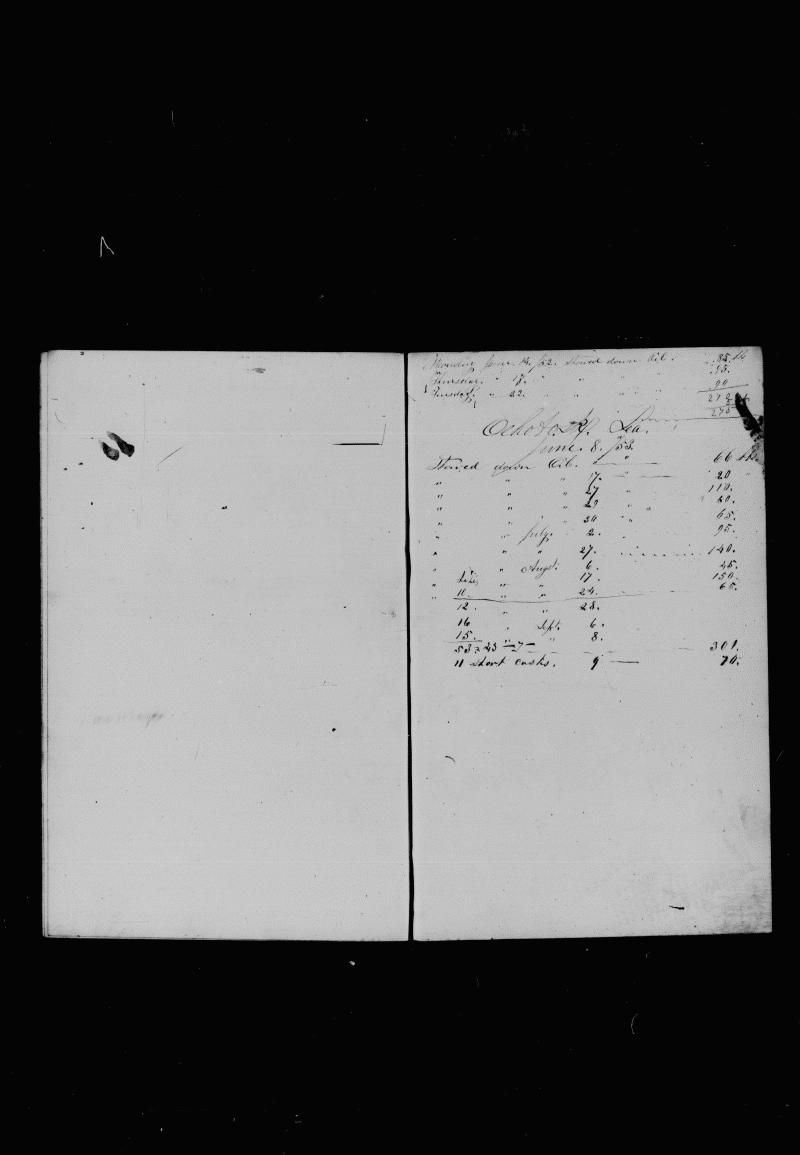 Monday June 14. /52. Stowed down Oil. 85. bbl
Thursday. " 17. " " " 95.
Tuesday. " 22. " " " 90
Ochotosk. Sea.
June. 8. /53.
Stowed down Oil. " 66 bbl.
" " " 17. 20
" " " 27 " 110.
" " " 29 " " 60.
" " " 30 " " 65.
" " July. 2. " 95.
" " " 27. 140.
" " Augst. 6. 45.
" " " 17. 150.
" 11. " " 24. 65.
12. " " 28.
16 " Sept. 6.
15. " " 8.
53 301.
11 Short Casks. 9 70.